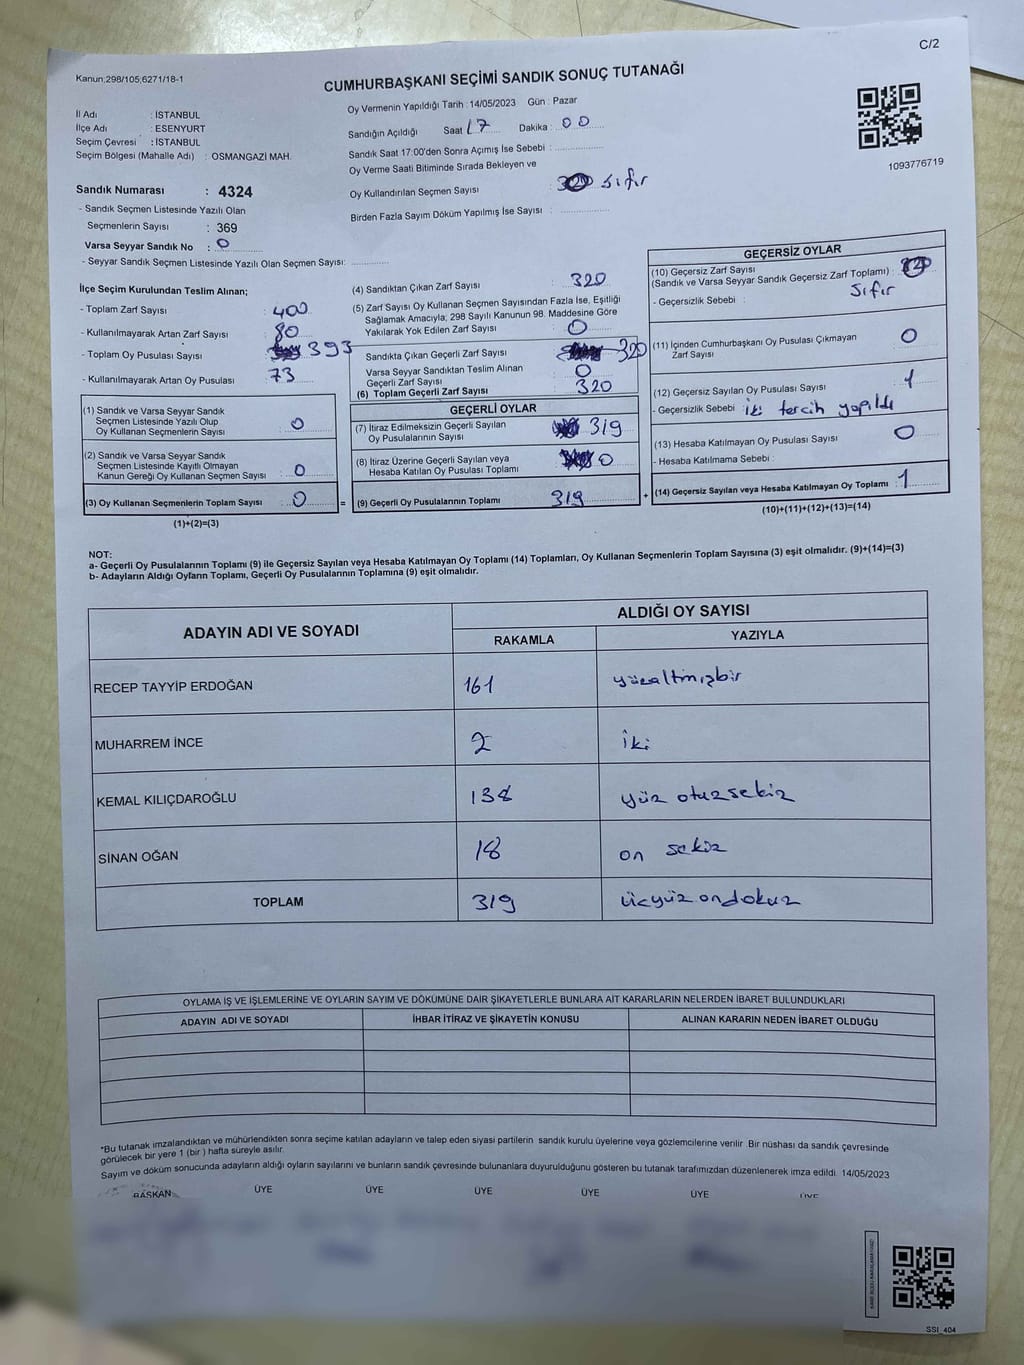 C/2
Kanun;298/105;6271/18-1
CUMHURBAŞKANI SEÇİMİ SANDIK SONUÇ TUTANAĞI
İl Adı : İSTANBUL
İlçe Adı : ESENYURT
Seçim Çevresi : İSTANBUL
Seçim Bölgesi (Mahalle Adı) : OSMANGAZİ MAH.
Sandık Numarası : 4324
- Sandık Seçmen Listesinde Yazılı Olan
Seçmenlerin Sayısı : 369
Varsa Seyyar Sandık No : 0
- Seyyar Sandık Seçmen Listesinde Yazılı Olan Seçmen Sayısı:
Oy Vermenin Yapıldığı Tarih : 14/05/2023 Gün : Pazar
Sandığın Açıldığı Saat 17 Dakika : 00
Sandık Saat 17:00'den Sonra Açımış İse Sebebi :
Oy Verme Saati Bitiminde Sırada Bekleyen ve
Oy Kullandırılan Seçmen Sayısı : sıfır
Birden Fazla Sayım Döküm Yapılmış İse Sayısı :
1093776719
İlçe Seçim Kurulundan Teslim Alınan;
- Toplam Zarf Sayısı : 400
- Kullanılmayarak Artan Zarf Sayısı : 80
- Toplam Oy Pusulası Sayısı : 393
- Kullanılmayarak Artan Oy Pusulası : 73
(1) Sandık ve Varsa Seyyar Sandık
Seçmen Listesinde Yazılı Olup
Oy Kullanan Seçmenlerin Sayısı : 0
(2) Sandık ve Varsa Seyyar Sandık
Seçmen Listesinde Kayıtlı Olmayan
Kanun Gereği Oy Kullanan Seçmen Sayısı : 0
(3) Oy Kullanan Seçmenlerin Toplam Sayısı : 0 =
(1)+(2)=(3)
(4) Sandıktan Çıkan Zarf Sayısı : 320
(5) Zarf Sayısı Oy Kullanan Seçmen Sayısından Fazla İse, Eşitliği
Sağlamak Amacıyla; 298 Sayılı Kanunun 98. Maddesine Göre
Yakılarak Yok Edilen Zarf Sayısı : 0
Sandıkta Çıkan Geçerli Zarf Sayısı : 320
Varsa Seyyar Sandıktan Teslim Alınan
Geçerli Zarf Sayısı : 0
(6) Toplam Geçerli Zarf Sayısı : 320
GEÇERLİ OYLAR
(7) İtiraz Edilmeksizin Geçerli Sayılan
Oy Pusulalarının Sayısı : 319
(8) İtiraz Üzerine Geçerli Sayılan veya
Hesaba Katılan Oy Pusulası Toplamı : 0
(9) Geçerli Oy Pusulalarının Toplamı : 319 +
GEÇERSİZ OYLAR
(10) Geçersiz Zarf Sayısı
(Sandık ve Varsa Seyyar Sandık Geçersiz Zarf Toplamı) :
- Geçersizlik Sebebi : Sıfır
(11) İçinden Cumhurbaşkanı Oy Pusulası Çıkmayan
Zarf Sayısı : 0
(12) Geçersiz Sayılan Oy Pusulası Sayısı : 1
- Geçersizlik Sebebi : iki tercih yapıldı
(13) Hesaba Katılmayan Oy Pusulası Sayısı : 0
- Hesaba Katılmama Sebebi :
(14) Geçersiz Sayılan veya Hesaba Katılmayan Oy Toplamı : 1
(10)+(11)+(12)+(13)=(14)
NOT:
a- Geçerli Oy Pusulalarının Toplamı (9) ile Geçersiz Sayılan veya Hesaba Katılmayan Oy Toplamı (14) Toplamları, Oy Kullanan Seçmenlerin Toplam Sayısına (3) eşit olmalıdır. (9)+(14)=(3)
b- Adayların Aldığı Oyların Toplamı, Geçerli Oy Pusulalarının Toplamına (9) eşit olmalıdır.
ADAYIN ADI VE SOYADI ALDIĞI OY SAYISI
RAKAMLA YAZIYLA
RECEP TAYYİP ERDOĞAN 161 yüzaltmışbir
MUHARREM İNCE 2 iki
KEMAL KILIÇDAROĞLU 138 yüz otuzsekiz
SİNAN OĞAN 18 on sekiz
TOPLAM 319 üçyüz ondokuz
OYLAMA İŞ VE İŞLEMLERİNE VE OYLARIN SAYIM VE DÖKÜMÜNE DAİR ŞİKAYETLERLE BUNLARA AİT KARARLARIN NELERDEN İBARET BULUNDUKLARI
ADAYIN ADI VE SOYADI İHBAR İTİRAZ VE ŞİKAYETİN KONUSU ALINAN KARARIN NEDEN İBARET OLDUĞU
*Bu tutanak imzalandıktan ve mühürlendikten sonra seçime katılan adayların ve talep eden siyasi partilerin sandık kurulu üyelerine veya gözlemcilerine verilir. Bir nüshası da sandık çevresinde
görülecek bir yere 1 (bir) hafta süreyle asılır.
Sayım ve döküm sonucunda adayların aldığı oyların sayılarını ve bunların sandık çevresinde bulunanlara duyurulduğunu gösteren bu tutanak tarafımızdan düzenlenerek imza edildi. 14/05/2023
BAŞKAN ÜYE ÜYE ÜYE ÜYE ÜYE ÜYE
SSI_404